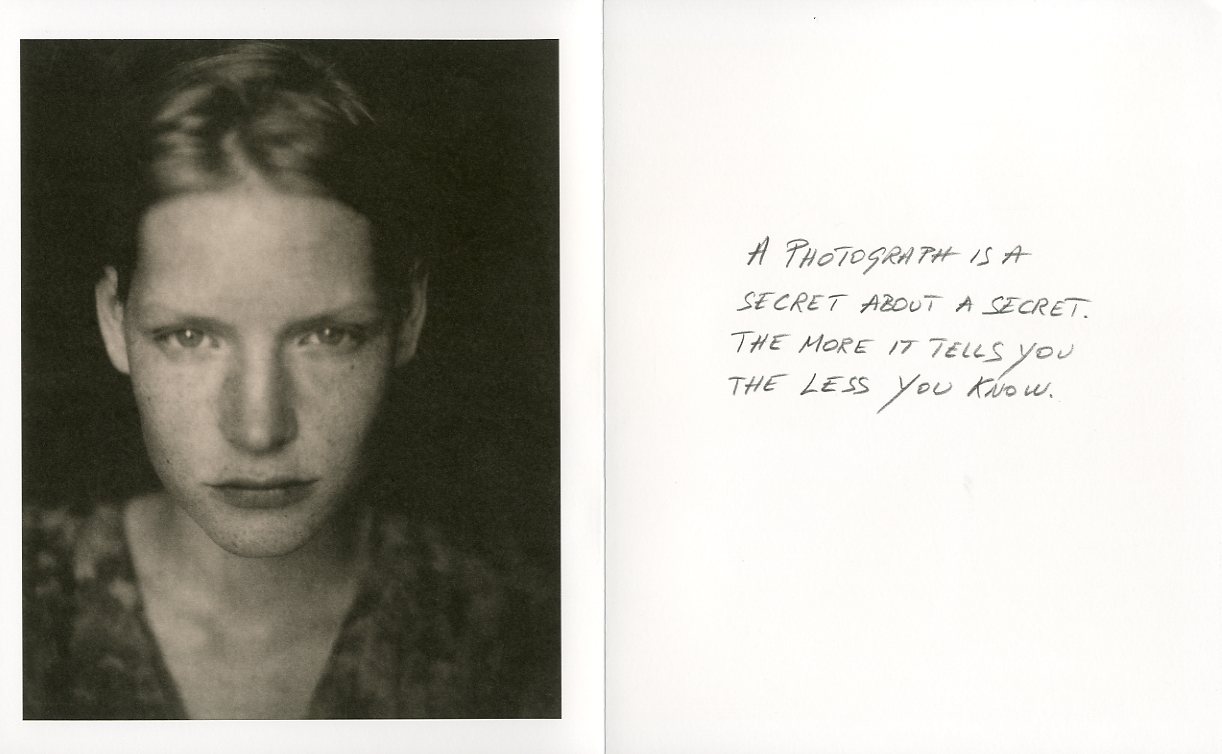 A PHOTOGRAPH IS A
SECRET ABOUT A SECRET.
THE MORE IT TELLS YOU
THE LESS YOU KNOW.